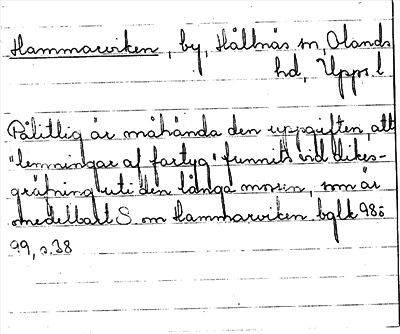 Hammarviken, by, Hållnäs sn, Olands
hd, Upps. l.
Pålitlig är måhända den uppgiften, att
"lemningar af fartyg" funnits vid dikes-
gräfning uti den långa mossen, som är
omedelbart S om Hammarviken bglk 98:
99, s. 38